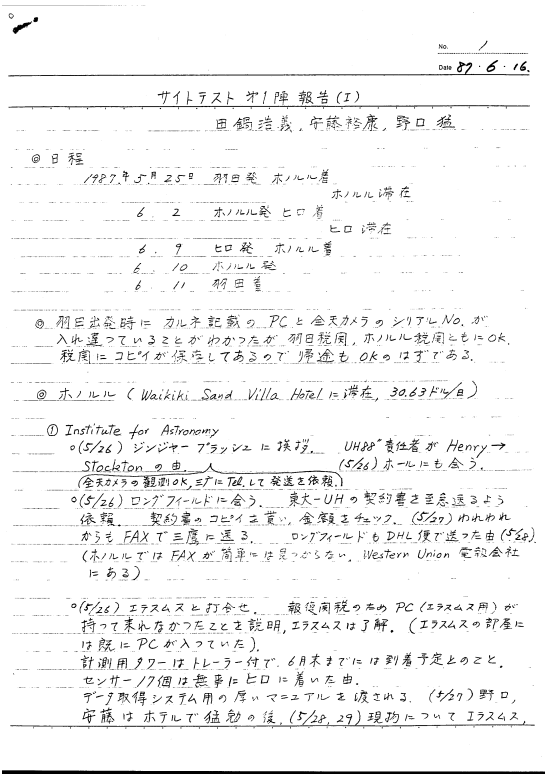 No. 1
Date 87・6・16.
サイトテスト 才1陣 報告(I)
田鍋浩義, 安藤裕康, 野口猛
◎ 日程
1987年5月25日 羽田発 ホノルル着
ホノルル滞在
6. 2 ホノルル発 ヒロ着
ヒロ滞在
6. 9 ヒロ発 ホノルル着
6. 10 ホノルル発
6. 11 羽田着
◎ 羽田出発時に カルネ記載の PCと全天カメラのシリアルNo.が
入れ違っていることがわかったが, 羽田税関, ホノルル税関ともにOK.
税関にコピイが保存してあるので 帰途も OKのはずである.
◎ ホノルル (Waikiki Sand Villa Hotelに滞在, 30.63ドル/日)
① Institute for Astronomy
○(5/26) ジンジャー プラッシュに挨拶. UH88"責任者が Henry→
Stockton の由. (5/26) ホールにも会う.
(全天カメラの観測OK, ミグにTel.して発送を依頼.)
○(5/26) ロングフィールドに会う. 東大-UHの契約書を至急送るよう
依頼. 契約書のコピイを貰い, 金額をチェック. (5/27) われわれ
からもFAXで三鷹に送る. ロングフィールドもDHL便で送った由(5/28).
(ホノルルではFAXが簡単には見つからない, Western Union 電設会社
にある)
○(5/26) エラスムスと打合せ. 報復関税のためPC(エラスムス用)が
持って来れなかったことを説明, エラスムスは了解. (エラスムスの部屋に
は既にPCが入っていた).
計測用タワーはトレーラー付で, 6月末までには到着予定とのこと.
センサー17個は無事にヒロに着いた由.
データ取得システム用の厚いマニュアルを渡される. (5/27) 野口,
安藤はホテルで猛勉の後, (5/28, 29) 現物についてエラスムス,